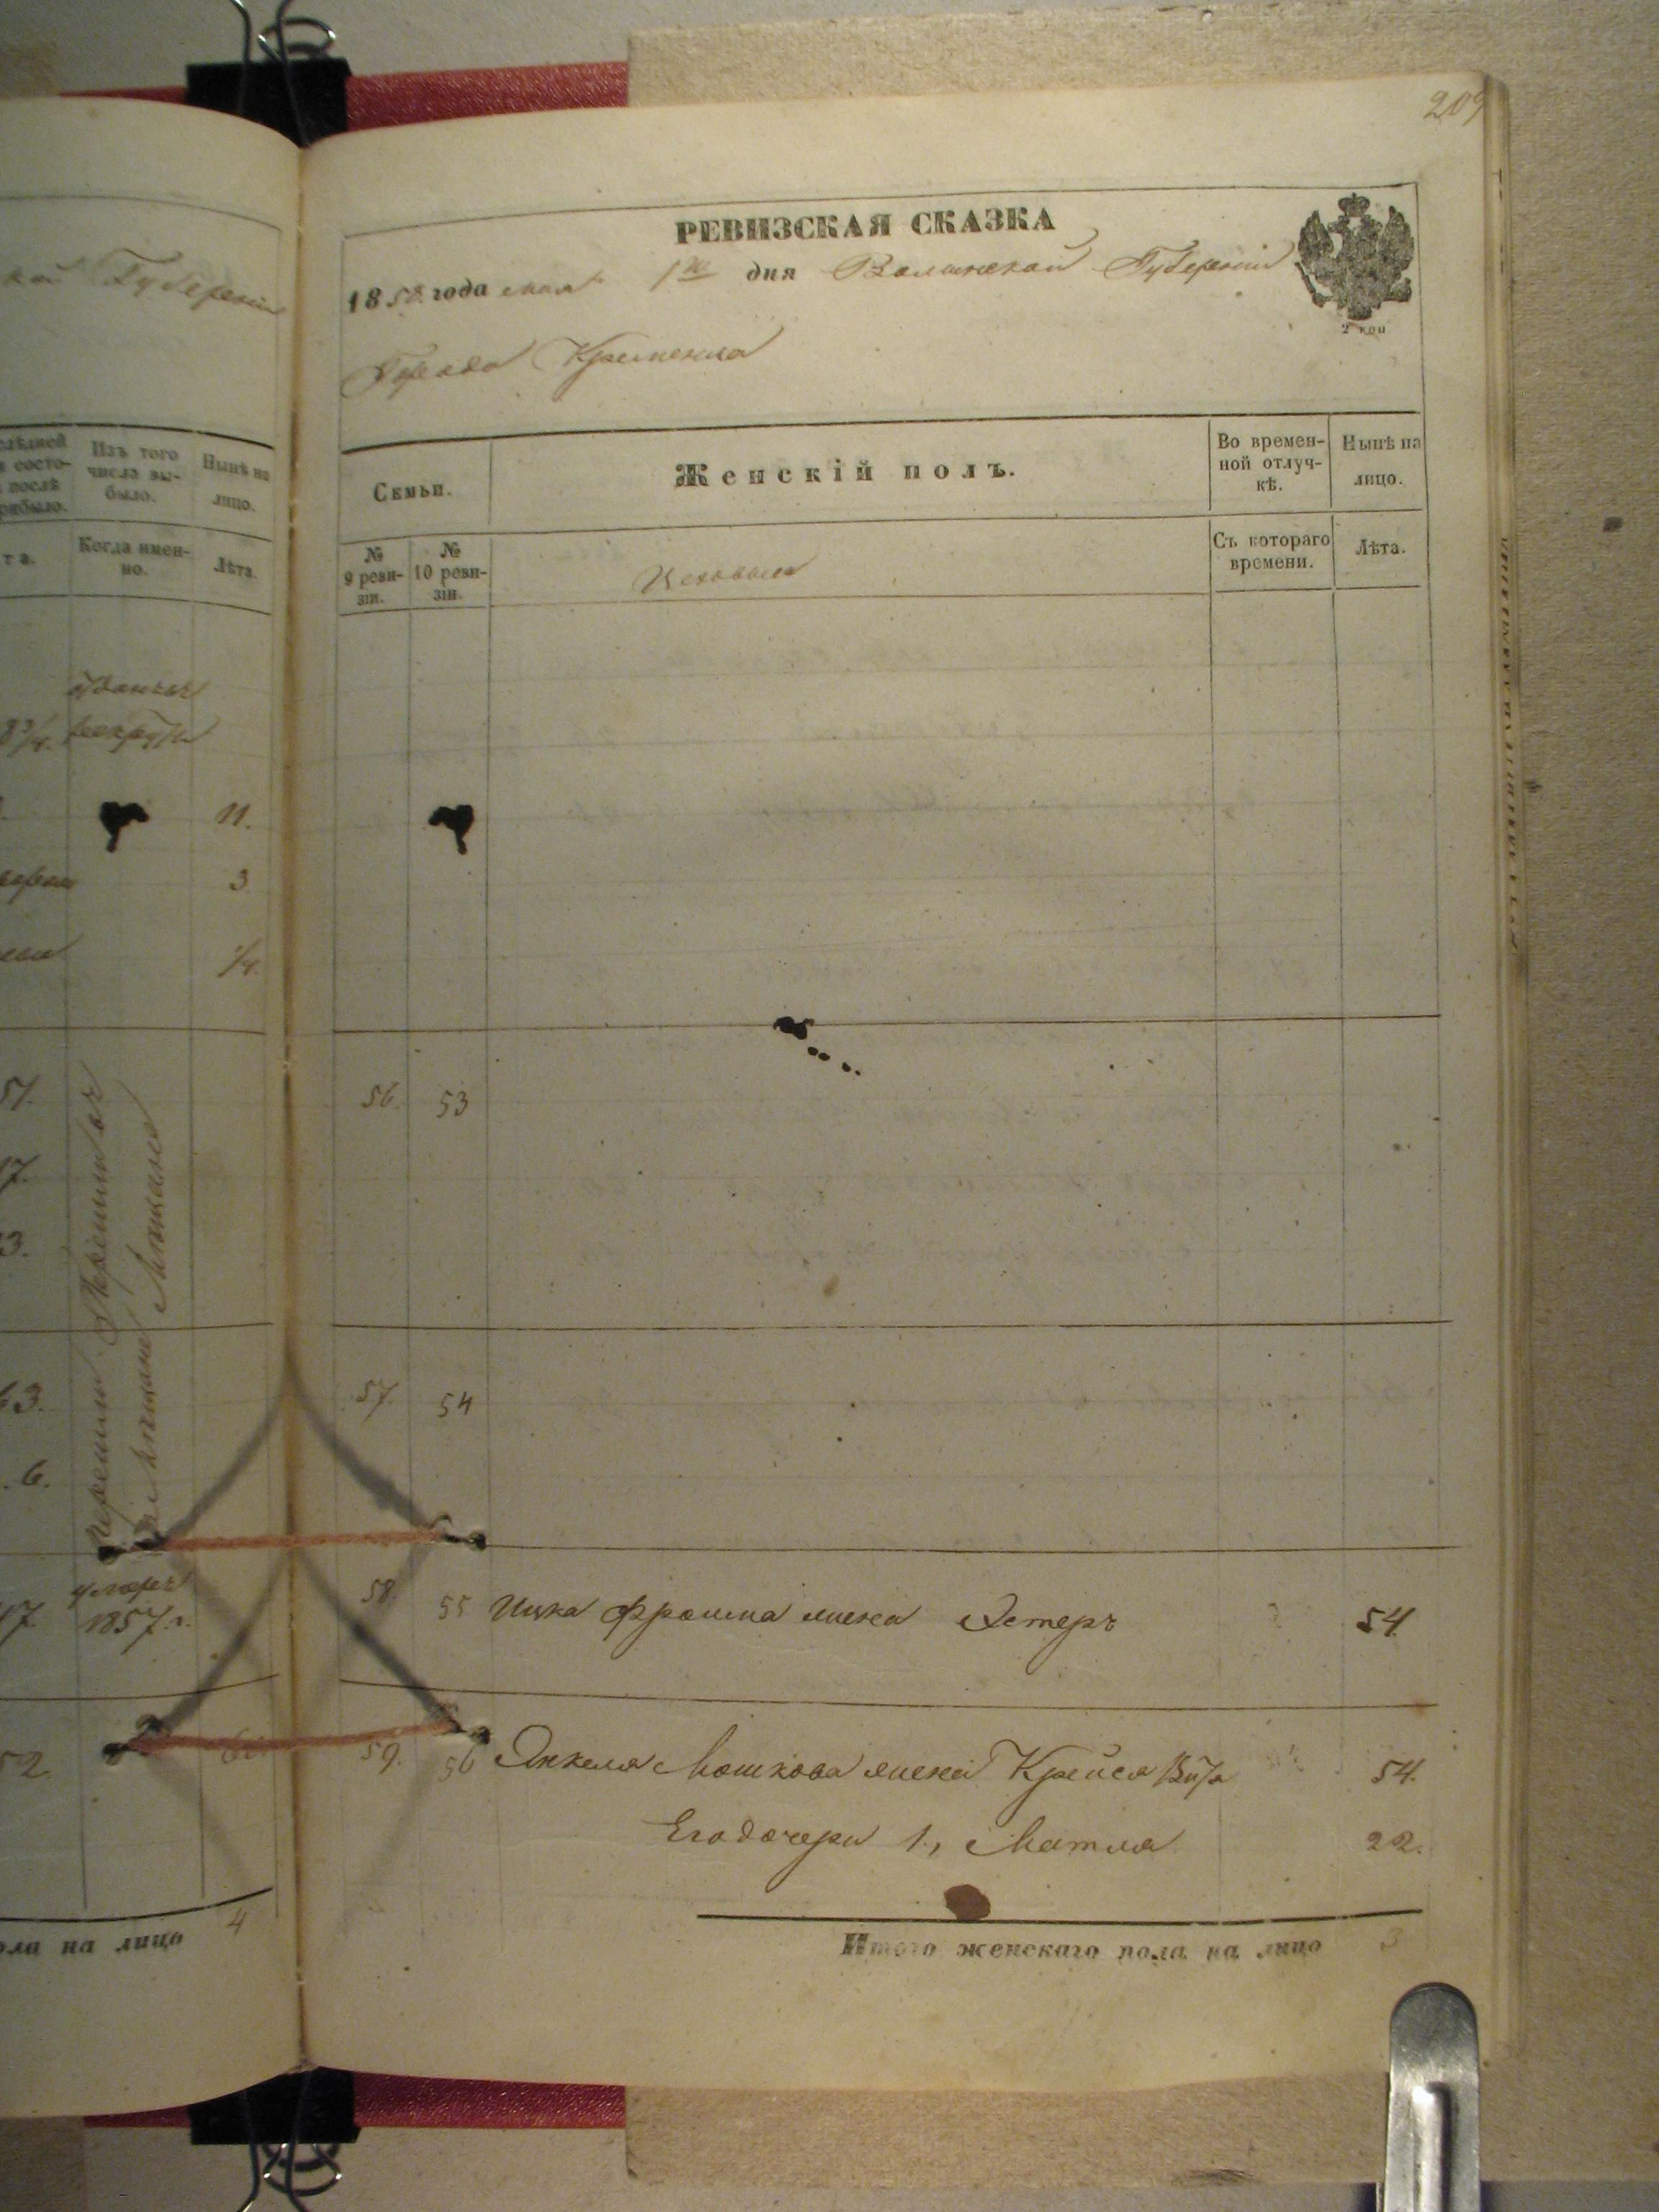 кой Губернiи
слѣдней
состо-
послѣ
рибыло.
Изъ того
числа вы-
было.
Нынѣ на
лицо.
та.
Когда имен-
но.
Лѣта.
отданъ въ
рекруты
11.
3
1/4.
51.
17.
3.
63.
6.
умеръ
17. 1857 г.
52.
4
ола на лицо
209
РЕВИЗСКАЯ СКАЗКА
1858 года мая 1го дня Волынской Губернiи
Города Кременца
2 коп
Семьи.
Женскiй полъ.
Во времен-
ной отлуч-
кѣ.
Нынѣ на
лицо.
№
9 реви-
зiи.
№
10 реви-
зiи.
Съ котораго
времени.
Лѣта.
56. 53
57. 54
58. 55 Ицка Фроима жена Эстеръ 54.
59. 56 Янкеля Мошкова жена Крейся 54.
Его дочери 1, Матля 22.
Итого женскаго пола на лицо 3